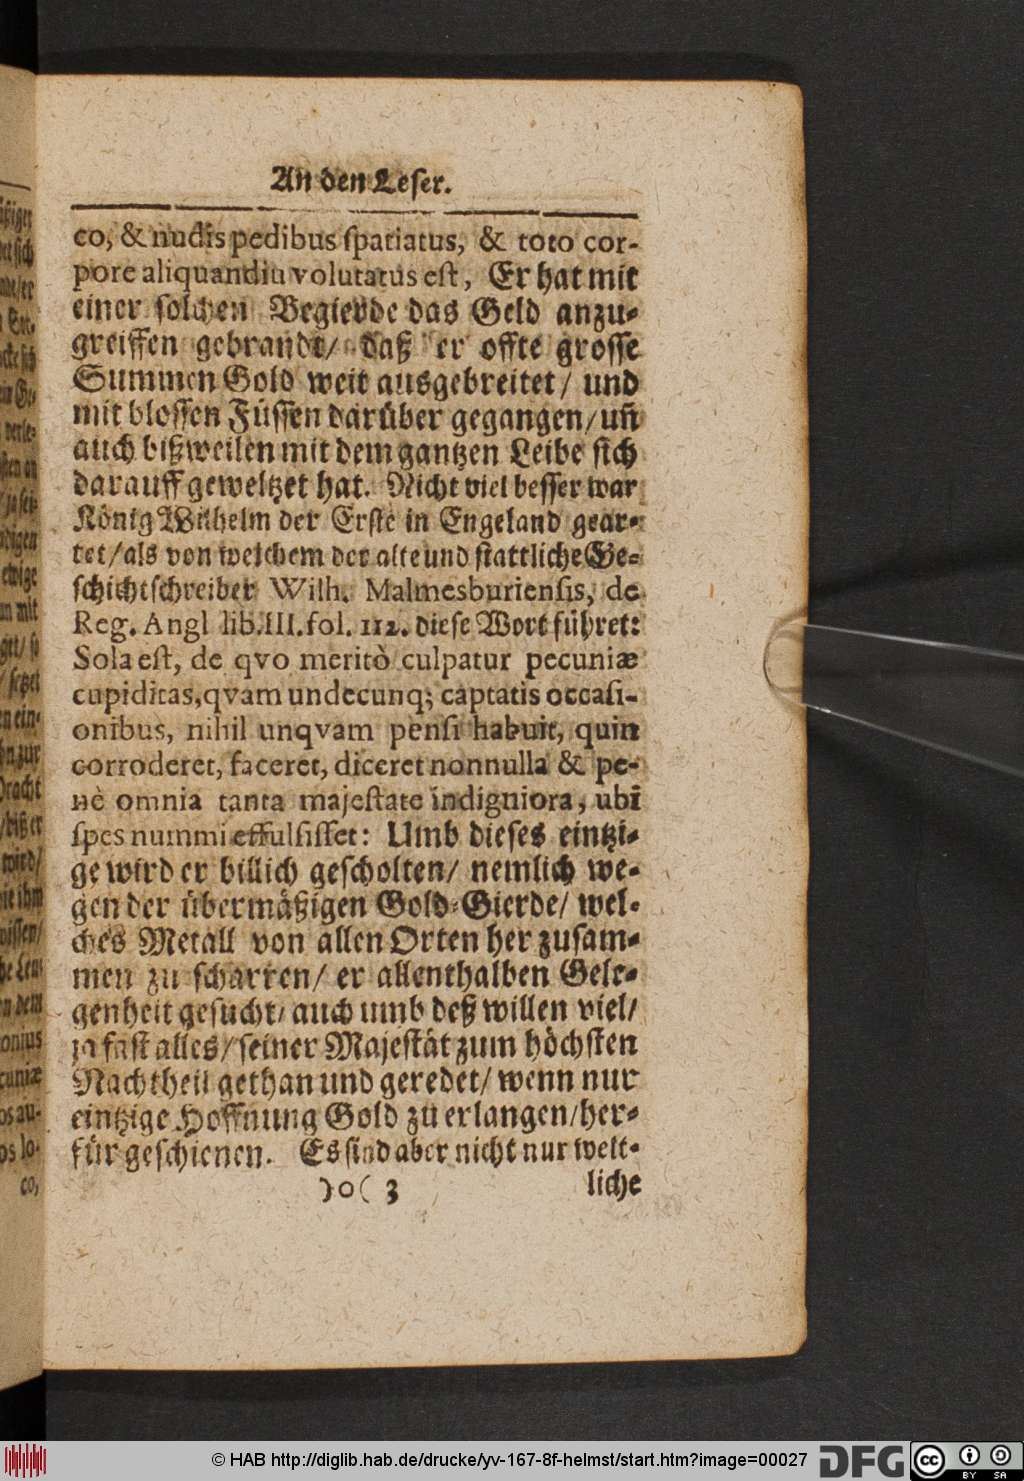 An den Leser.
co, & nudis pedibus spatiatus, & toto cor-
pore aliquandiu volutatus est, Er hat mit
einer solchen Begierde das Geld anzu-
greiffen gebrandt/ daß er offte grosse
Summen Gold weit ausgebreitet/ und
mit blossen Füssen darüber gegangen/ uñ
auch bißweilen mit dem gantzen Leibe sich
darauff geweltzet hat. Nicht viel besser war
König Wilhelm der Erste in Engeland gear-
tet/ als von welchem der alte und stattliche Ge-
schichtschreiber Wilh. Malmesburiensis, de
Reg. Angl lib. III. fol. 112. diese Wort führet:
Sola est, de qvo meritò culpatur pecuniæ
cupiditas, qvam undecunq; captatis occasi-
onibus, nihil unqvam pensi habuit, quin
corroderet, faceret, diceret nonnulla & pe-
nè omnia tanta majestate indigniora, ubi
spes nummi effulsisset: Umb dieses eintzi-
ge wird er billich gescholten/ nemlich we-
gen der übermäßigen Gold-Gierde/ wel-
ches Metall von allen Orten her zusam-
men zu scharren/ er allenthalben Gele-
genheit gesucht/ auch umb deß willen viel/
ja fast alles/ seiner Majestät zum höchsten
Nachtheil gethan und geredet/ wenn nur
eintzige Hoffnung Gold zu erlangen/ her-
für geschienen. Es sind aber nicht nur welt-
)o( 3 liche
© HAB http://diglib.hab.de/drucke/yv-167-8f-helmst/start.htm?image=00027 DFG CC BY SA